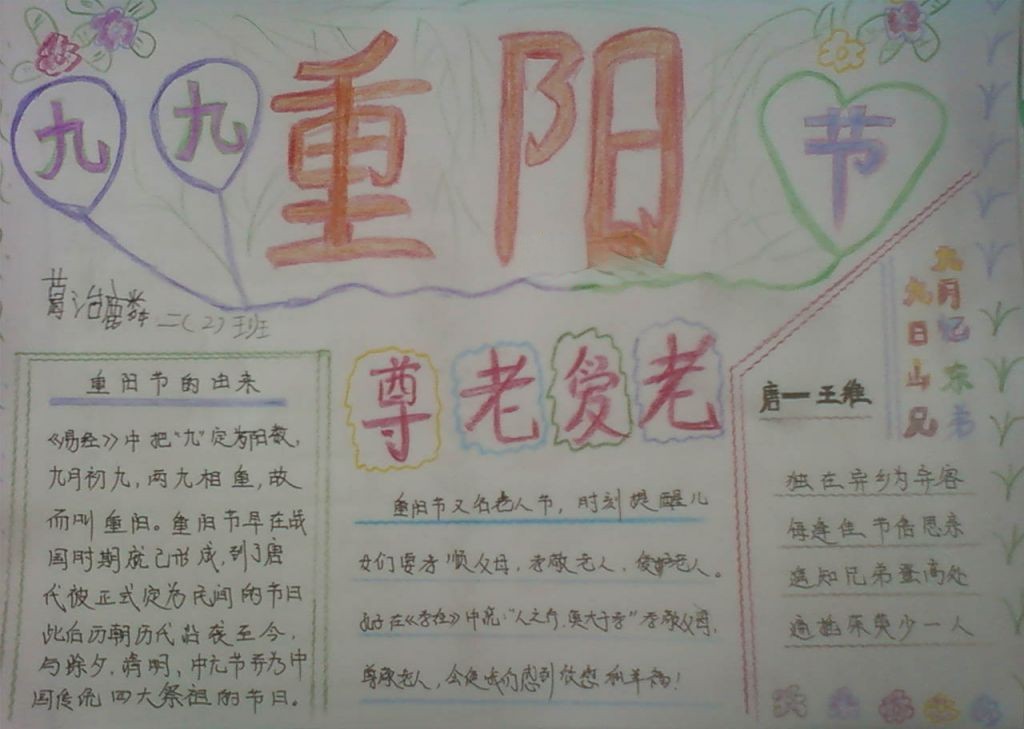 九九重阳节
二(2)班
重阳节的由来
《易经》中把“九”定为阳数,
九月初九,两九相重,故
而叫重阳。重阳节早在战
国时期就已形成,到了唐
代被正式定为民间的节日
此后历朝历代沿袭至今,
与除夕,清明,中元节并为中
国传统四大祭祖的节日。
尊老爱老
重阳节又名老人节,时刻提醒儿
女们要孝顺父母,孝敬老人,爱护老人。
《孝经》中说:“人之行,莫大于孝”孝敬父母,
尊敬老人,会使我们感到欣慰和幸福!
九月
九日忆
山东
兄弟
唐—王维
独在异乡为异客
每逢佳节倍思亲
遥知兄弟登高处
遍插茱萸少一人